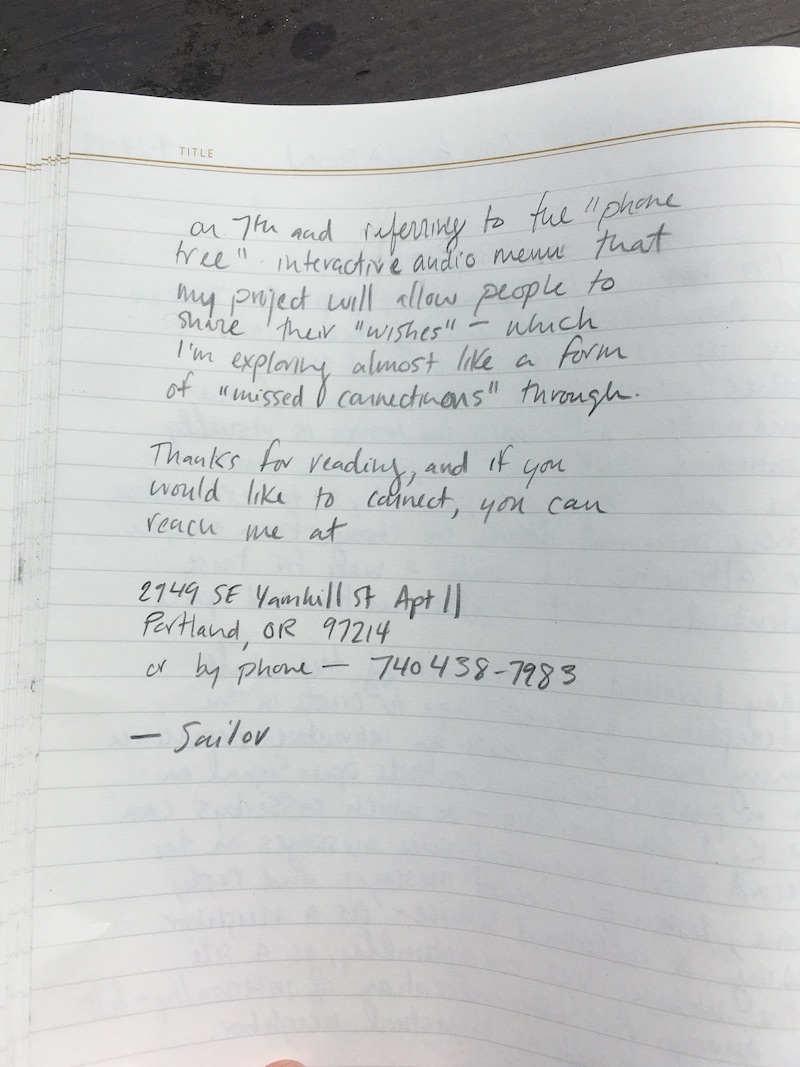 TITLE
on 7th and referring to the "phone
tree" interactive audio menu that
my project will allow people to
share their "wishes" – which
I'm exploring almost like a form
of "missed connections" through.
Thanks for reading, and if you
would like to connect, you can
reach me at
2949 SE Yamhill St Apt 11
Portland, OR 97214
or by phone – 740 438-7983
– Sailor